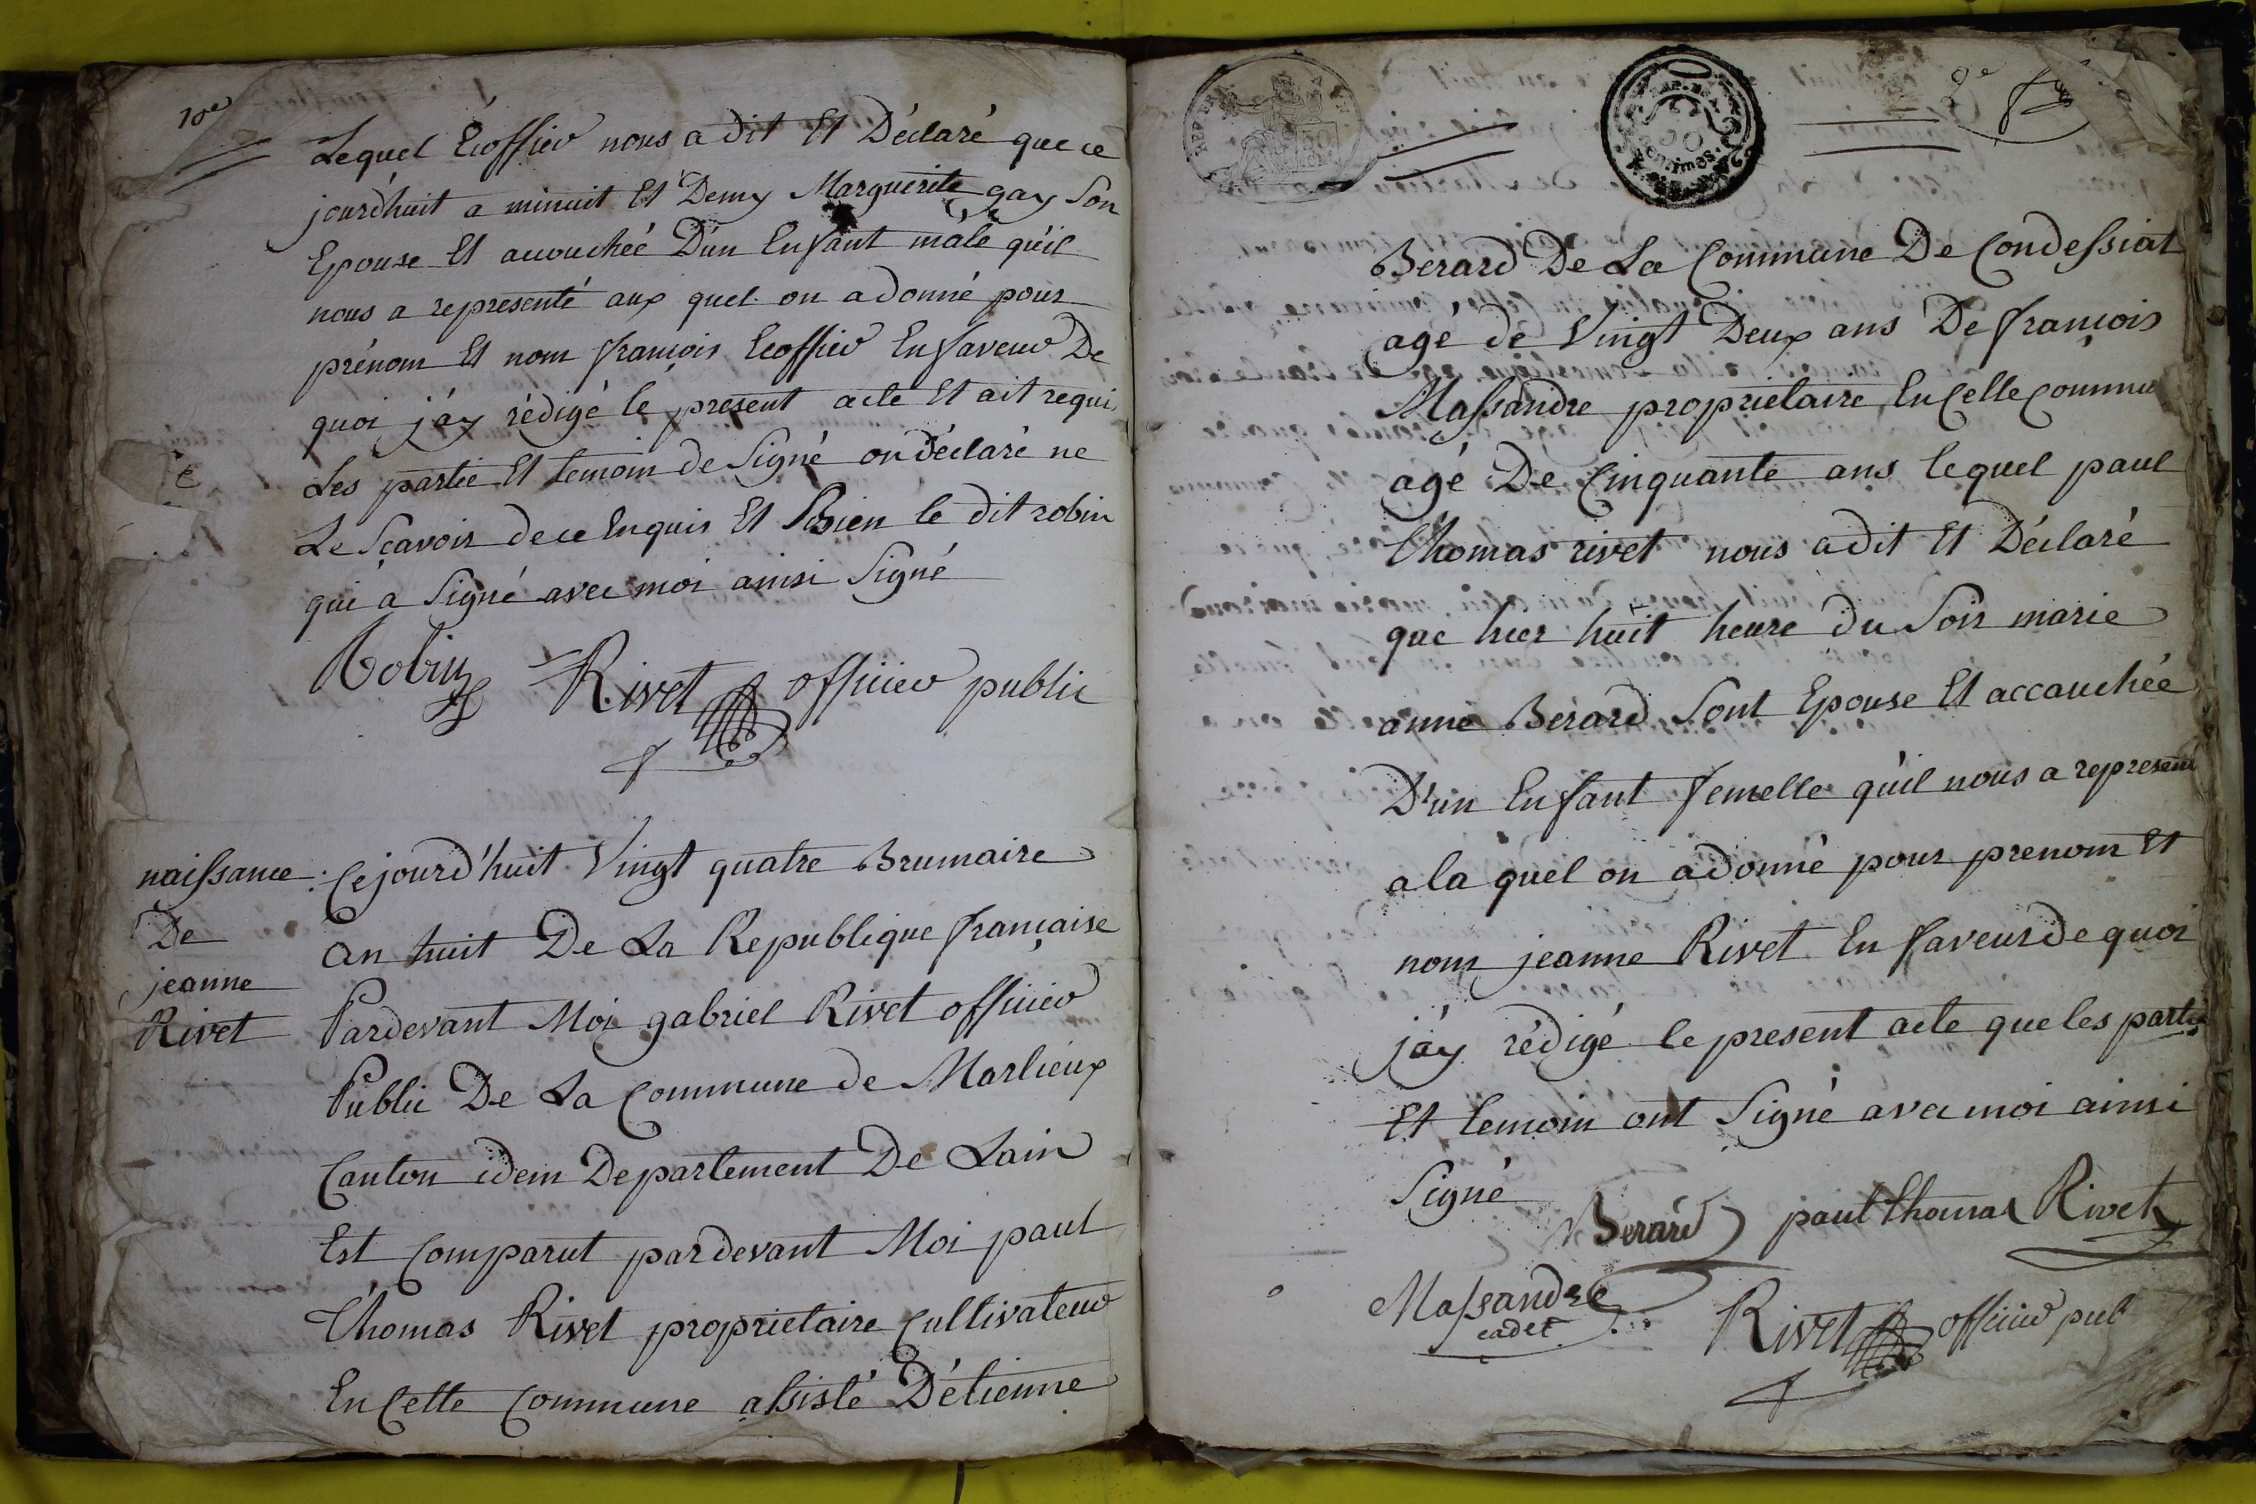 10e
Lequel Ecoffier nous a dit Et Déclaré que ce
jourd'huit a minuit Et Demy Marguerite gay Son
Epouse Et accouchéé D'un Enfant male qu'il
nous a representé aux quel on a donné pour
prénom Et nom françois Ecoffier En faveur De
quoi j'áy rédigé le present acte Et ait requi
Les partie Et temoin de Signé on déclaré ne
Le Sçavoir de ce Enquis Et Bien le dit robin
qui a Signé avec moi ainsi Signé
Robin Rivet officier public
naissance De jeanne Rivet
Cejourd'huit Vingt quatre Brumaire
an huit De La Republique française
Pardevant Moi gabriel Rivet officier
Public De La Commune de Marlieux
Canton idem Departement De Lain
Est Comparut pardevant Moi paul
Thomas Rivet proprietaire Cultivateur
En Cette Commune assisté D'étienne
REP. FRA.
50
centimes.
2e
Berard De La Commune De Condessiat
agé de Vingt Deux ans De françois
Massandre proprietaire En Cette Commu
agé De Cinquante ans lequel paul
thomas rivet nous a dit Et Déclaré
que hier huit heure du Soir marie
anne Bérard Sont Epouse Et accauchée
D'un Enfant femelle qu'il nous a representé
a la quel on a donné pour prenom Et
nom jeanne Rivet En faveur de quoi
j'áy rédigé le present acte que les partie
Et temoin ont Signé avec moi ainsi
Signé
Berard paul thomas Rivet
Massandre cadet
Rivet officier pub